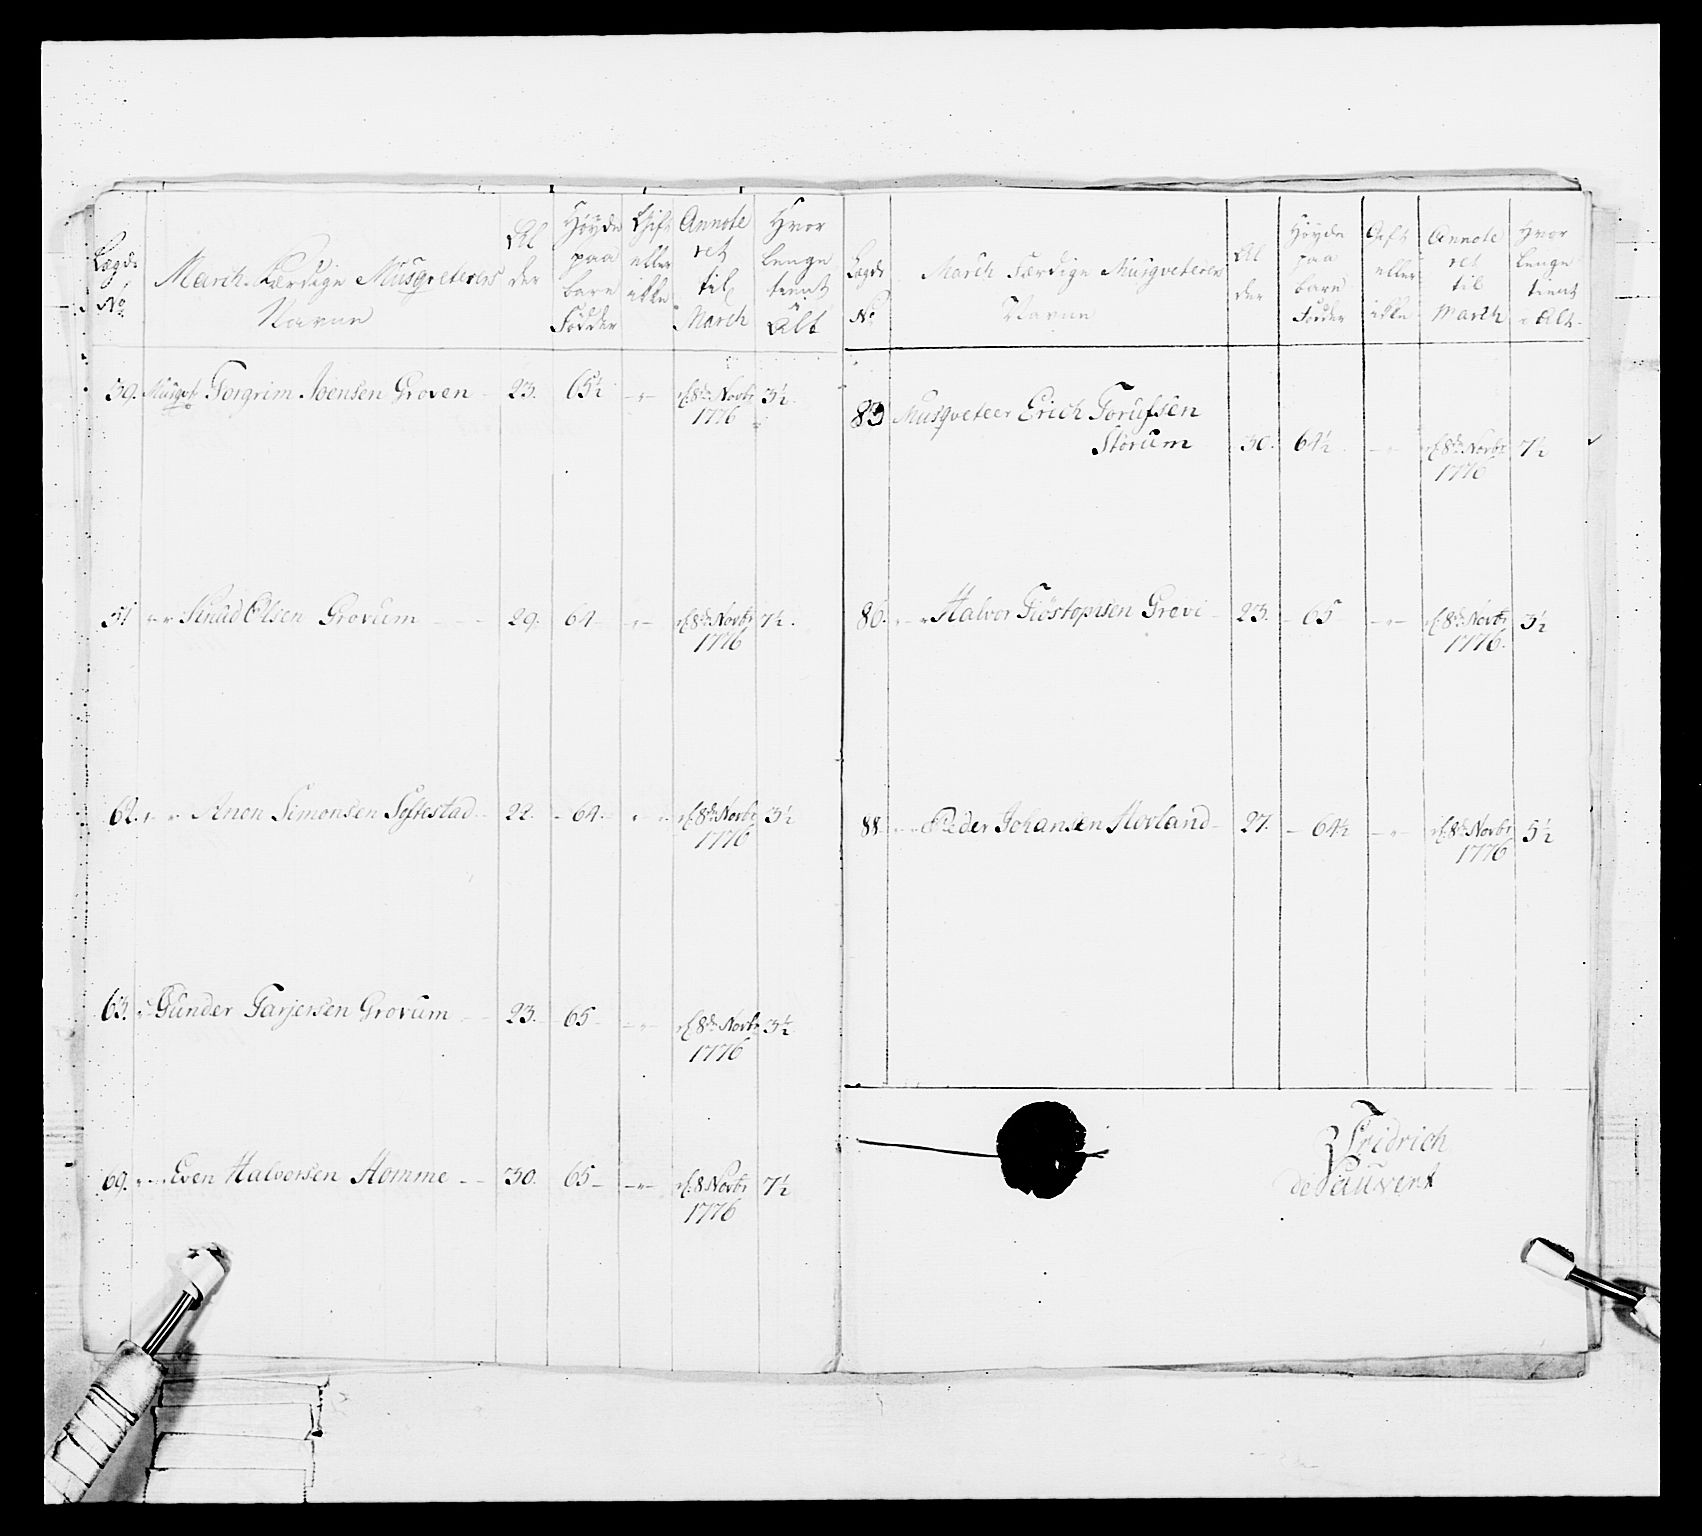 Lægds No
March Færdige Musqveterers Navne
Al der
Høyde paa bare Fødder
Gift eller ikke
Annote ret til March
Hvor lenge tient i Alt
39. Musqvt Torgrim Joensen Groven 23. 65½ - " - d. 8de Novbr 1776 3½
51 " " Knud Olsen Grovum 29. 64 " - d. 8de Novbr 1776 7½.
62. " " Anon Simonsen Softestad 22. - 64 - " " d. 8de Novbr 1776 3½
63. " Gunder Tarjersen Grovum 23. 65 - " - d. 8de Novbr 1776 3½
69. " - " Even Halvorsen Homme - - 30. 65 - - " - d. 8 Novbr 1776 7½
Lægds No
March Færdige Musqveterers Navne
Al der
Høyde paa bare Fødder
Gift eller ikke
Annote ret til March
Hvor lenge tient i Alt.
83 Musqveteer Erich Torufsen
Storum 30. 64½ - " - d. 8de Novbr 1776 7½
86. " - " Halvor Giöstophsen Grevi - 23. - 65 - " - d. 8de Novbr 1776. 3½
88 - " - " Peder Johansen Hovland - 27. - 64½ - " - d. 8de Novbr 1776 5½
Fridrich
de